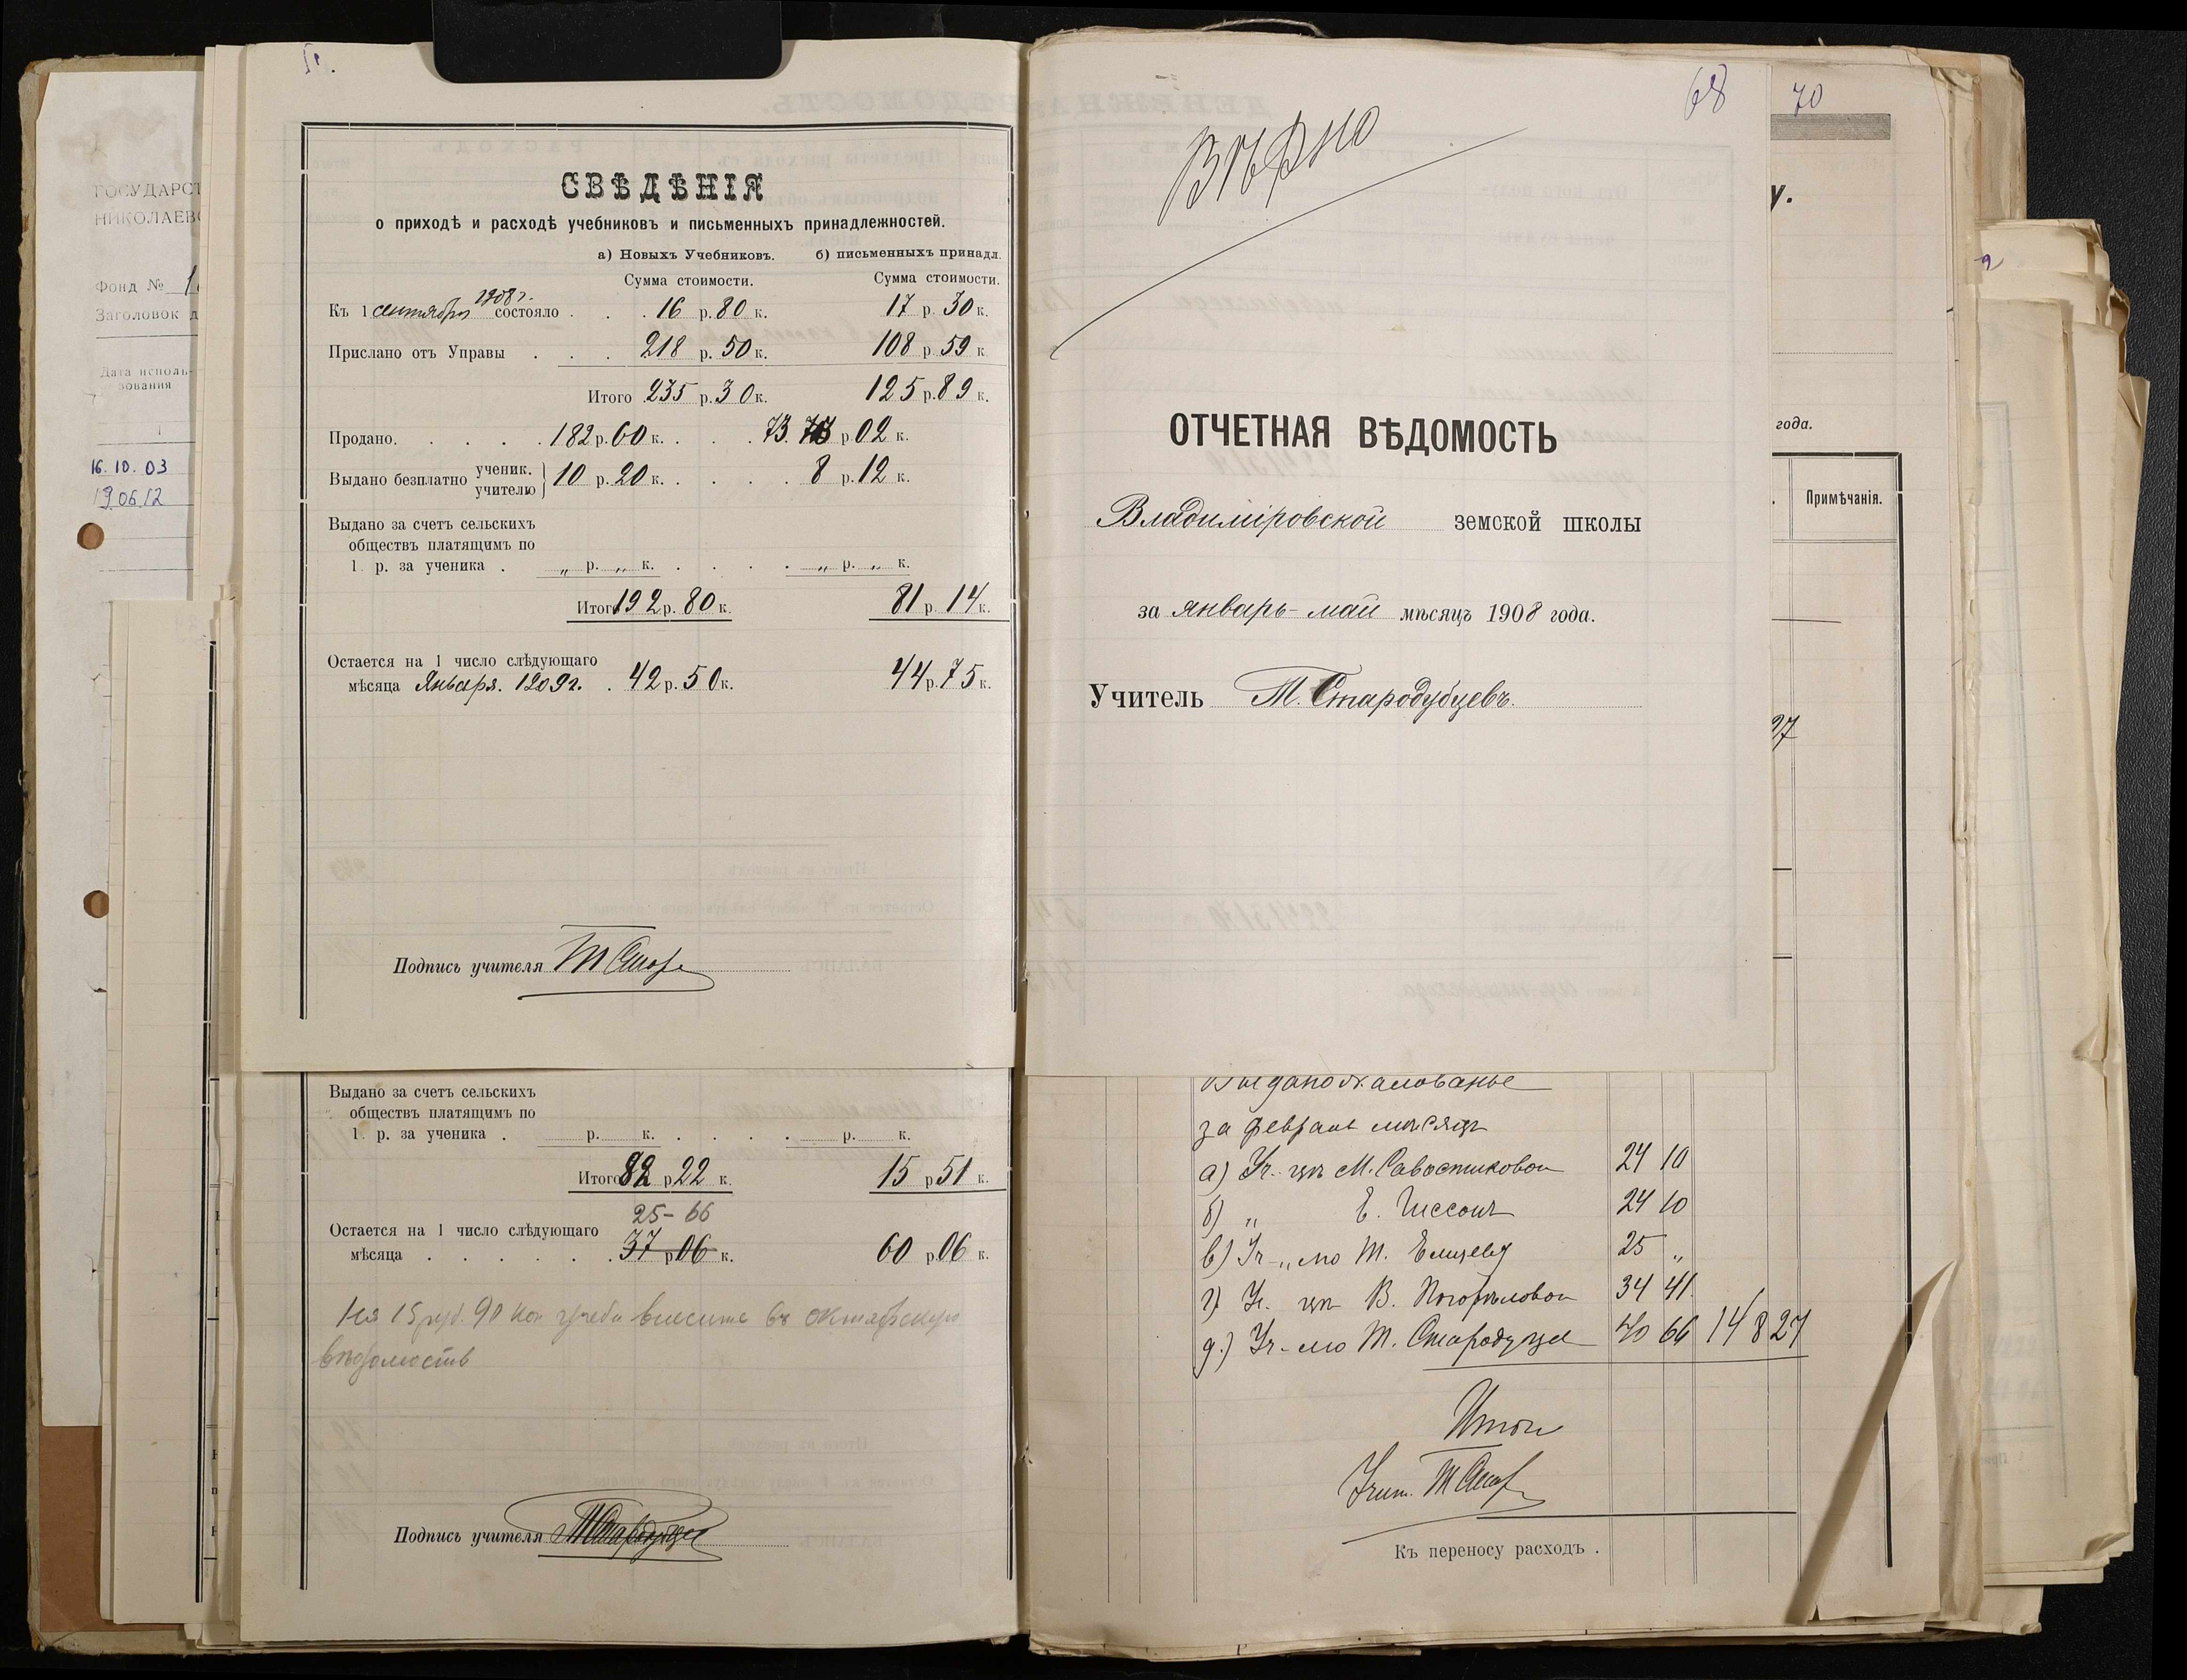 ГОСУДАРСТ
НИКОЛАЕВС
Фонд №
Заголовок д
Дата исполь-
зования
16.10.03
19.06.12
СВѢДѢНІЯ
о приходѣ и расходѣ учебниковъ и письменныхъ принадлежностей.
а) Новыхъ Учебниковъ. б) письменныхъ принадл.
Сумма стоимости. Сумма стоимости.
Къ 1 сентября 1908 г. состояло . . . 16 р. 80 к. 17 р. 30 к.
Прислано отъ Управы . . . 218 р. 50 к. 108 р 59 к
Итого 235 р. 30 к. 125 р. 89 к.
Продано. . . . . 182 р. 60 к. . . . 73. р. 02 к.
Выдано безплатно ученик. учителю } 10 р. 20 к. . . . . 8 р. 12 к.
Выдано за счетъ сельскихъ
обществъ платящимъ по
1 р. за ученика . „ р. „ к. . . . . „ р. „ к.
Итого 192 р. 80 к. 81 р. 14 к.
Остается на 1 число слѣдующаго
мѣсяца Января. 1909 г. . 42 р. 50 к. 44 р. 75 к.
Подпись учителя Т Стар
Выдано за счетъ сельскихъ
обществъ платящимъ по
1 р. за ученика . р. к. . . . . р. к.
Итого 82 р 22 к. 15 р 51 к.
25-66
Остается на 1 число слѣдующаго
мѣсяца . . . . . . 37 р 06 к. 60 р. 06 к.
На 15 руб. 90 коп внесите въ октябрскую
вѣдомость
Подпись учителя Т Стародубцев
68
Вѣрно
ОТЧЕТНАЯ ВѢДОМОСТЬ
Владиміровской земской школы
за январь - май мѣсяцъ 1908 года.
Учитель Т. Стародубцевъ.
70
у.
года.
Примѣчанія.
27
Выдано жалованье
за февраль мѣсяцъ
а) Уч-цѣ М. Савостиковой 24 10
б) „ Е. 24 10
в) Уч-„лю Т. Елисееву 25 „
г) Уч. цѣ В. Погорѣловой 34 41
д.) Уч-лю Т. Стародубце 40 66 148 27
Итого
Учит. Т Стар
Къ переносу расходъ .